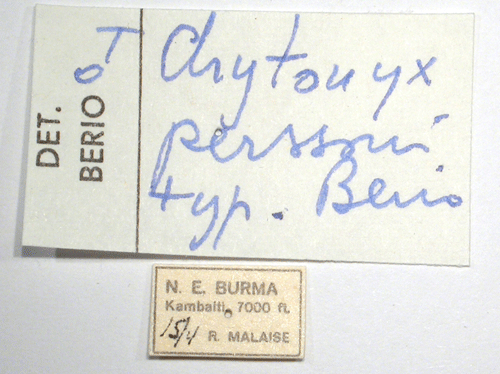 DET.
BERIO
♂
Chrytonyx
perssoni
typ. Berio
N. E. BURMA
Kambaiti, 7000 ft.
15/4 R. MALAISE